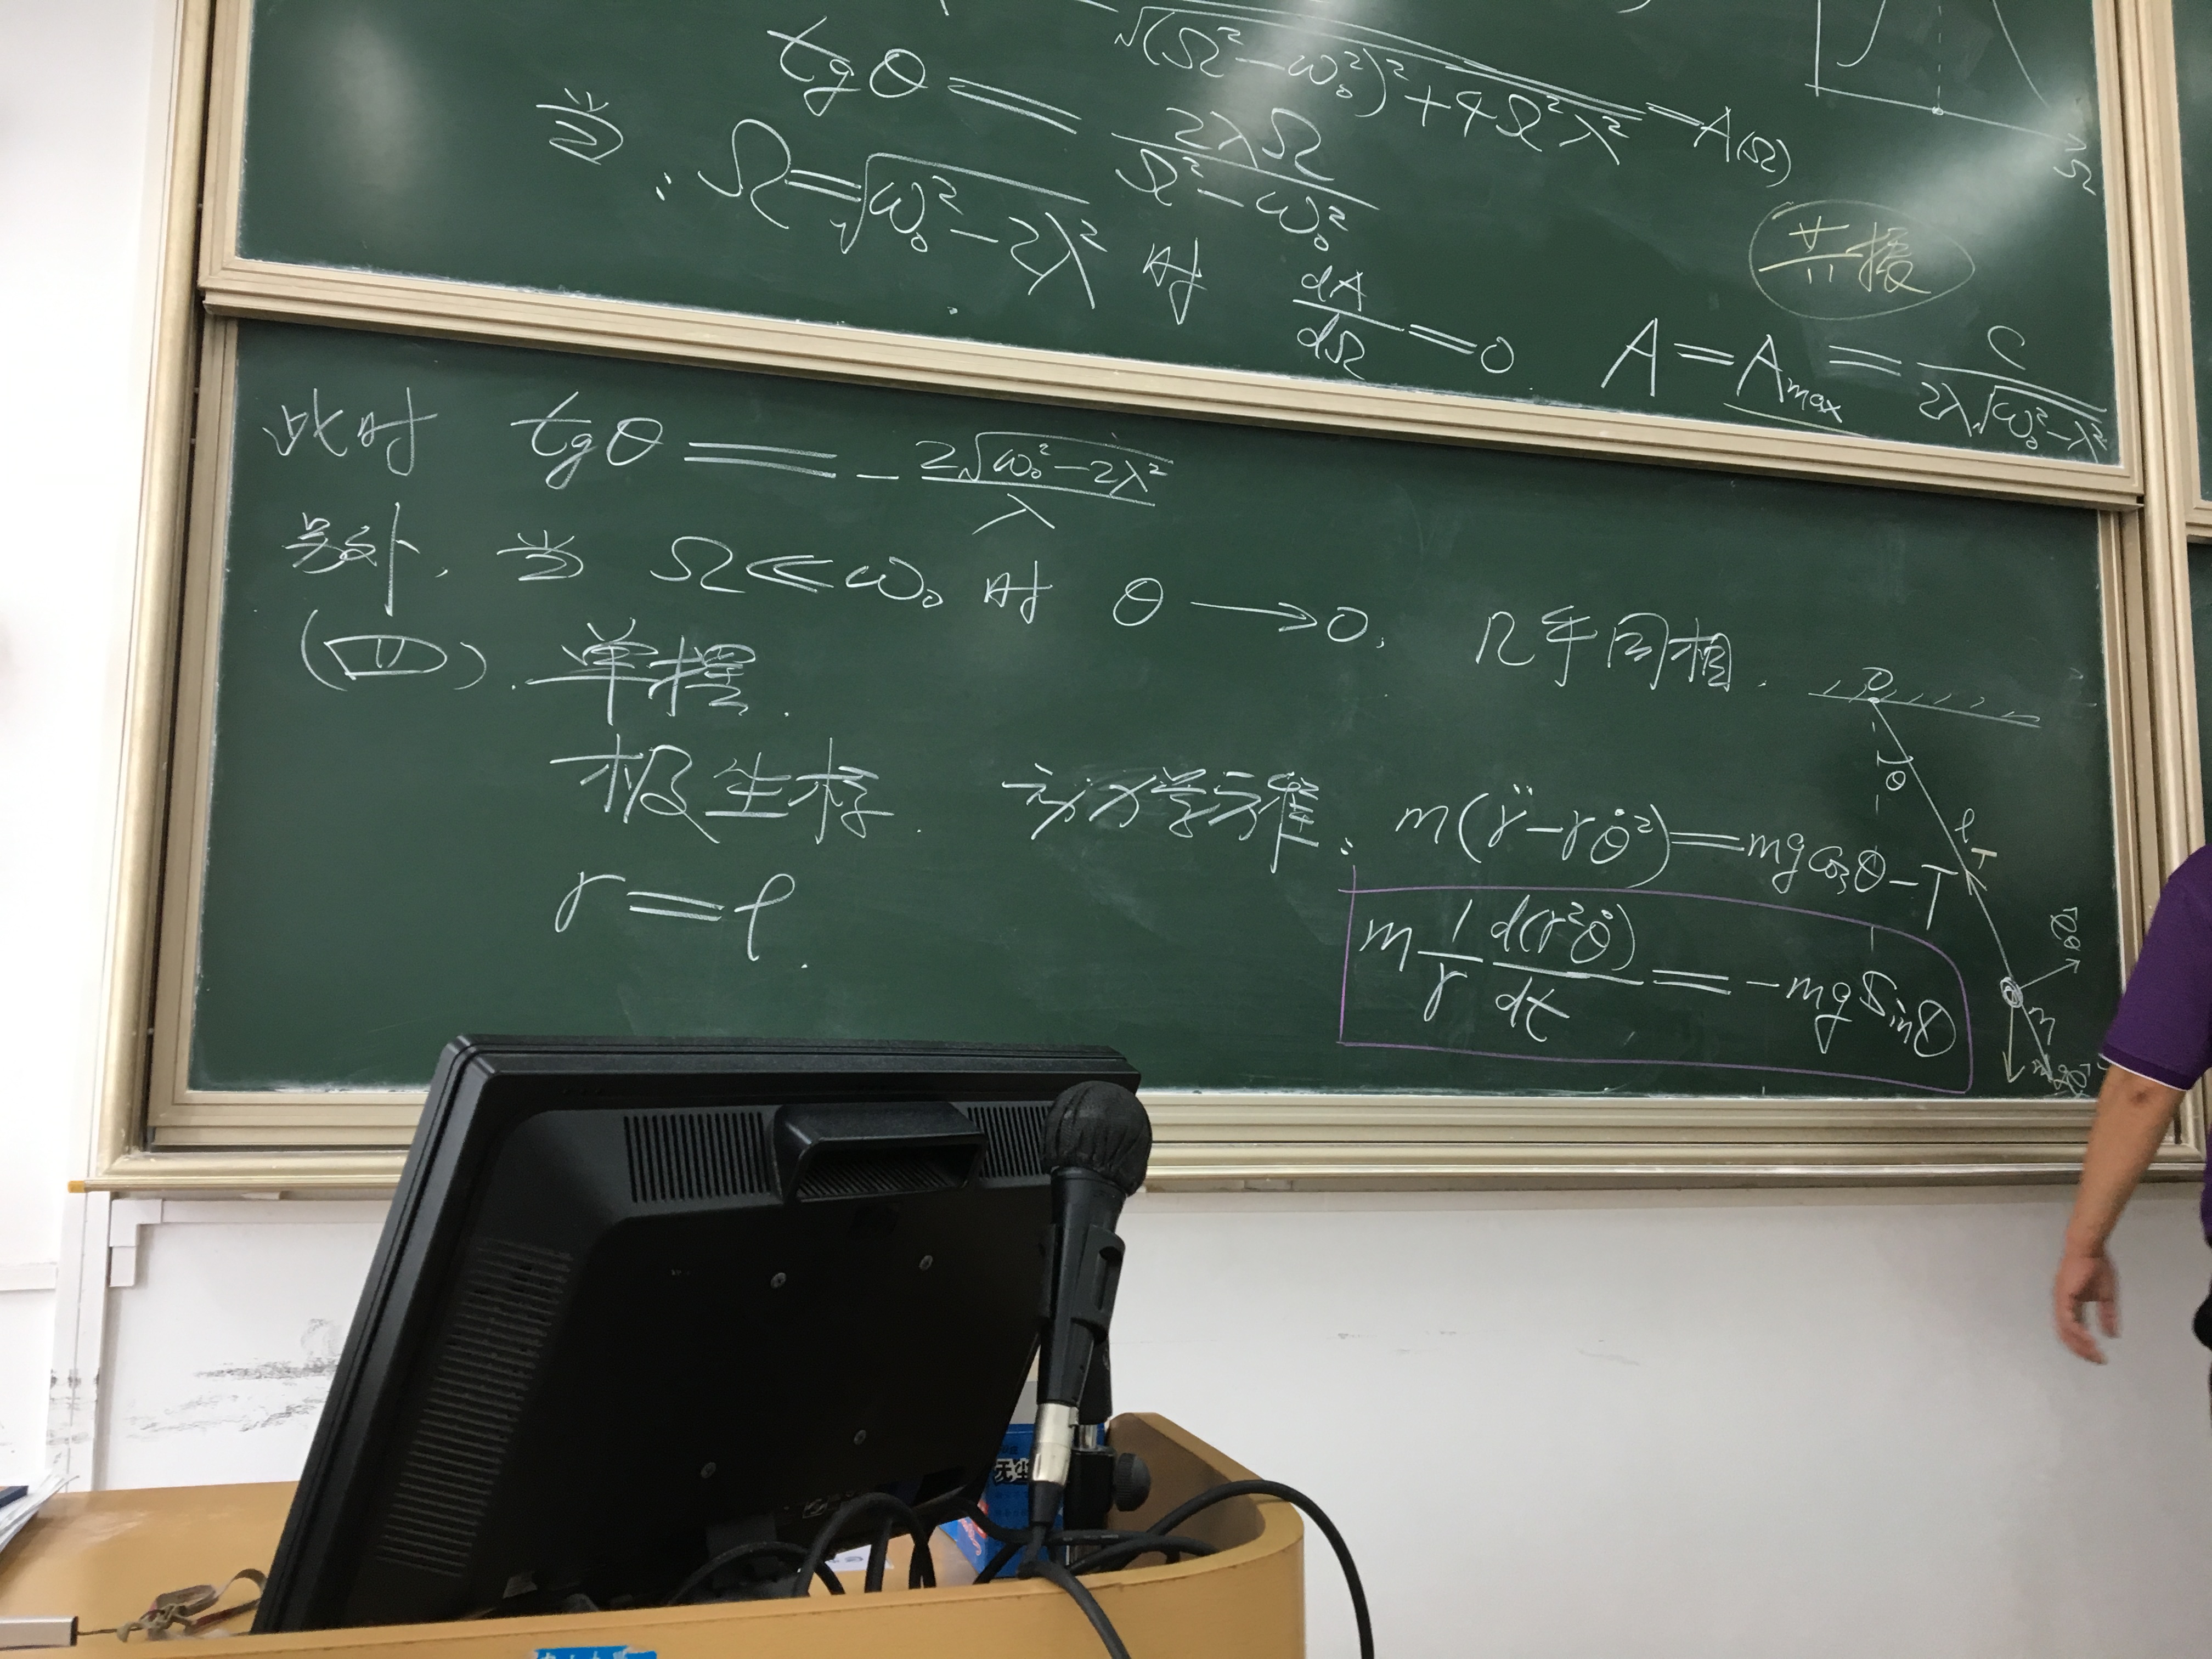 √((Ω²−ω₀²)²+4Ω²λ²) = A(Ω)
tgθ = 2λΩ / (Ω²−ω₀²)
Ω
当: Ω=√(ω₀²−2λ²) 时 dA/dΩ=0. A=Amax=C/(2λ√(ω₀²−λ²))
共振
此时 tgθ = −2√(ω₀²−2λ²)/λ
另外, 当 Ω≪ω₀ 时 θ→0, 几乎同相.
(四). 单摆.
极坐标. 动力学方程: m(r̈−rθ̇²)=mgcosθ−T
r=l.
m (1/r) d(r²θ̇)/dt = −mgsinθ
O
θ
l
T
m
无尘